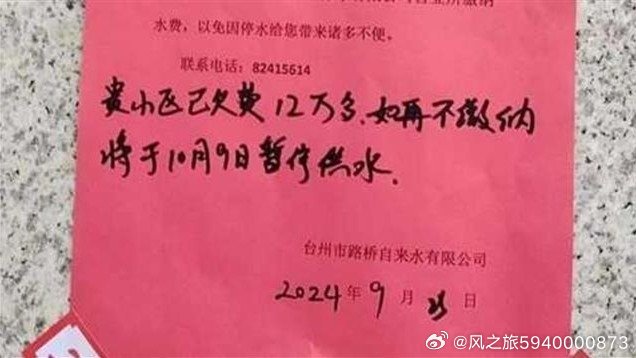 水费，以免因停水给您带来诸多不便。
联系电话：82415614
贵小区已欠费12万多、如再不缴纳
将于10月9日暂停供水.
台州市路桥自来水有限公司
2024年9月 日
@风之旅5940000873